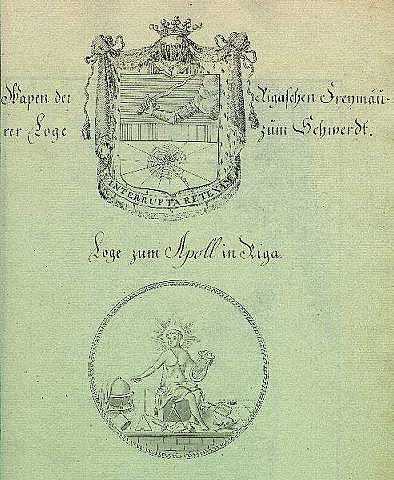 Wapen der Rigaschen Freymäu-
rer Loge zum Schwerdt.
INTERRUPTA RETEXIT
Loge zum Apoll in Riga.